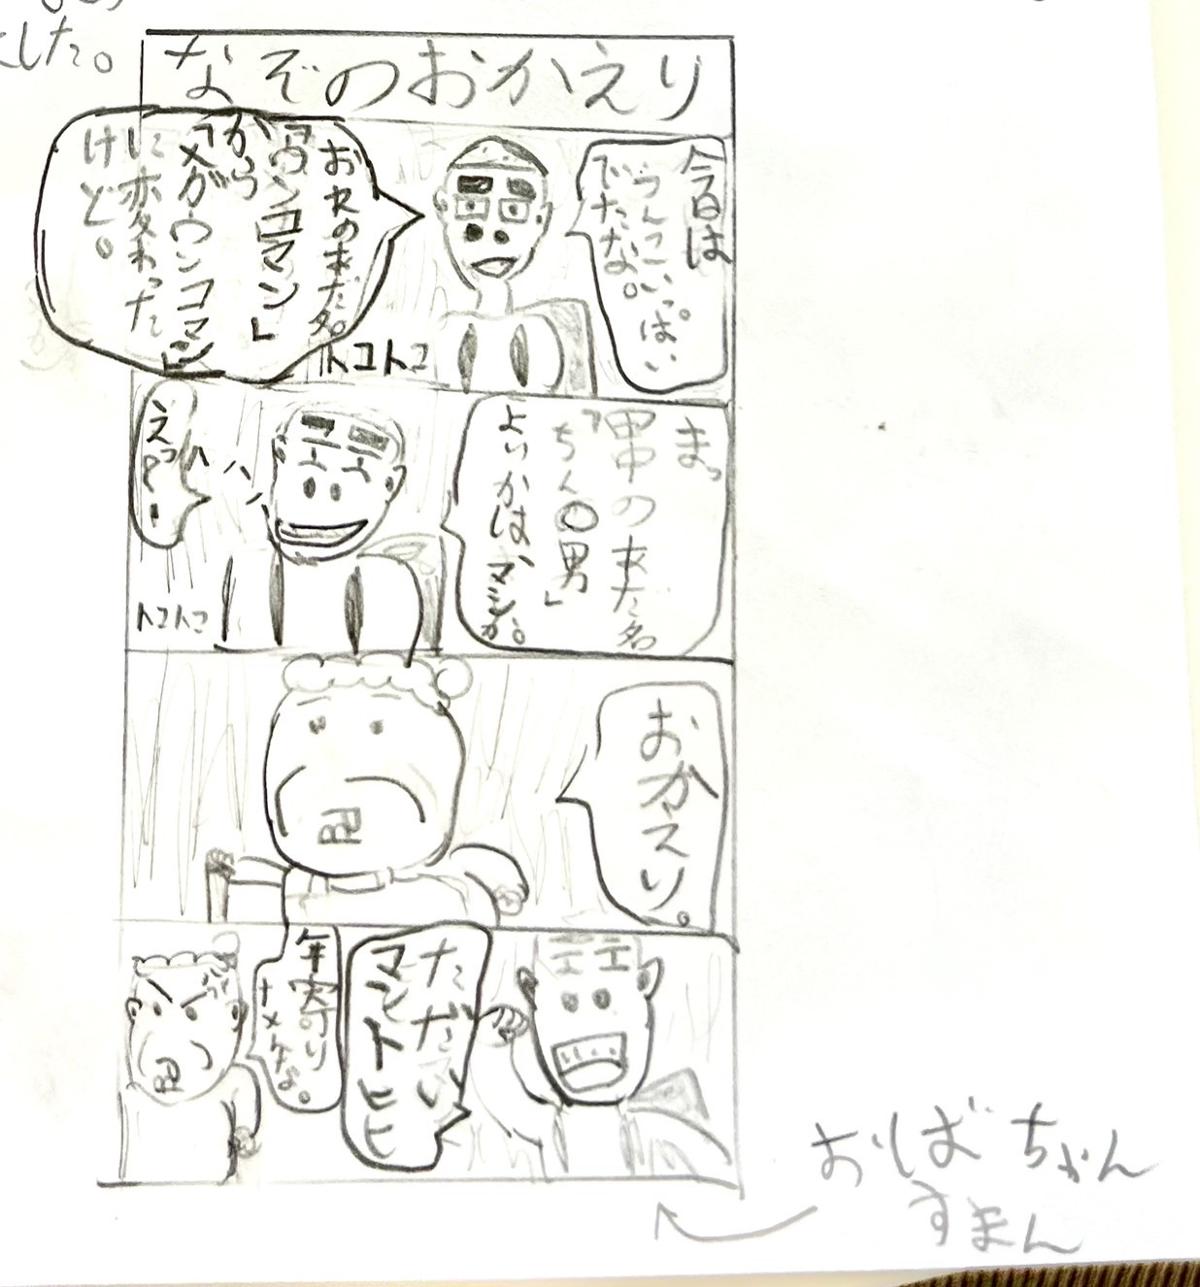 した。
なぞのおかえり
今日は
うんこいっぱい
でたな。
おれのあだ名。
「ウンコマン」
から
「メガウンコマン」
に変わった
けど。
トコトコ
まっ
田中のあだ名
「ちん〇男」
よりかは、マシか。
えっ?!
トコトコ
おかえり。
ただいい
マントヒヒ
年寄り
ナメんな。
おばちゃん
すまん